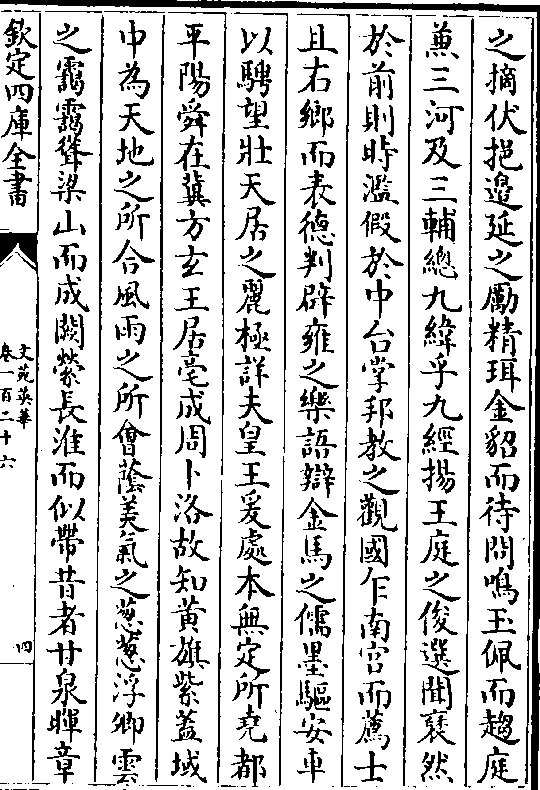 之摘伏挹邉延之勵精珥金貂而待問鳴玉佩而趨庭
兼三河及三輔總九緯乎九經揚王庭之俊選聞褎然
於前則時濫假於中台掌邦教之觀國乍南宫而薦士
且右鄉而表德判辟雍之樂語辯金馬之儒墨驅安車
以騁望壯天居之麗極詳夫皇王爰處本無定所堯都
平陽舜在冀方玄王居亳成周卜洛故知黄旗紫蓋域
中為天地之所合風雨之所㑹蔭美氣之葱葱浮卿雲
之靄靄聳梁山而成闕縈長淮而似帶昔者甘泉暉章
欽定四庫全書
文苑英華
卷一百二十六
四